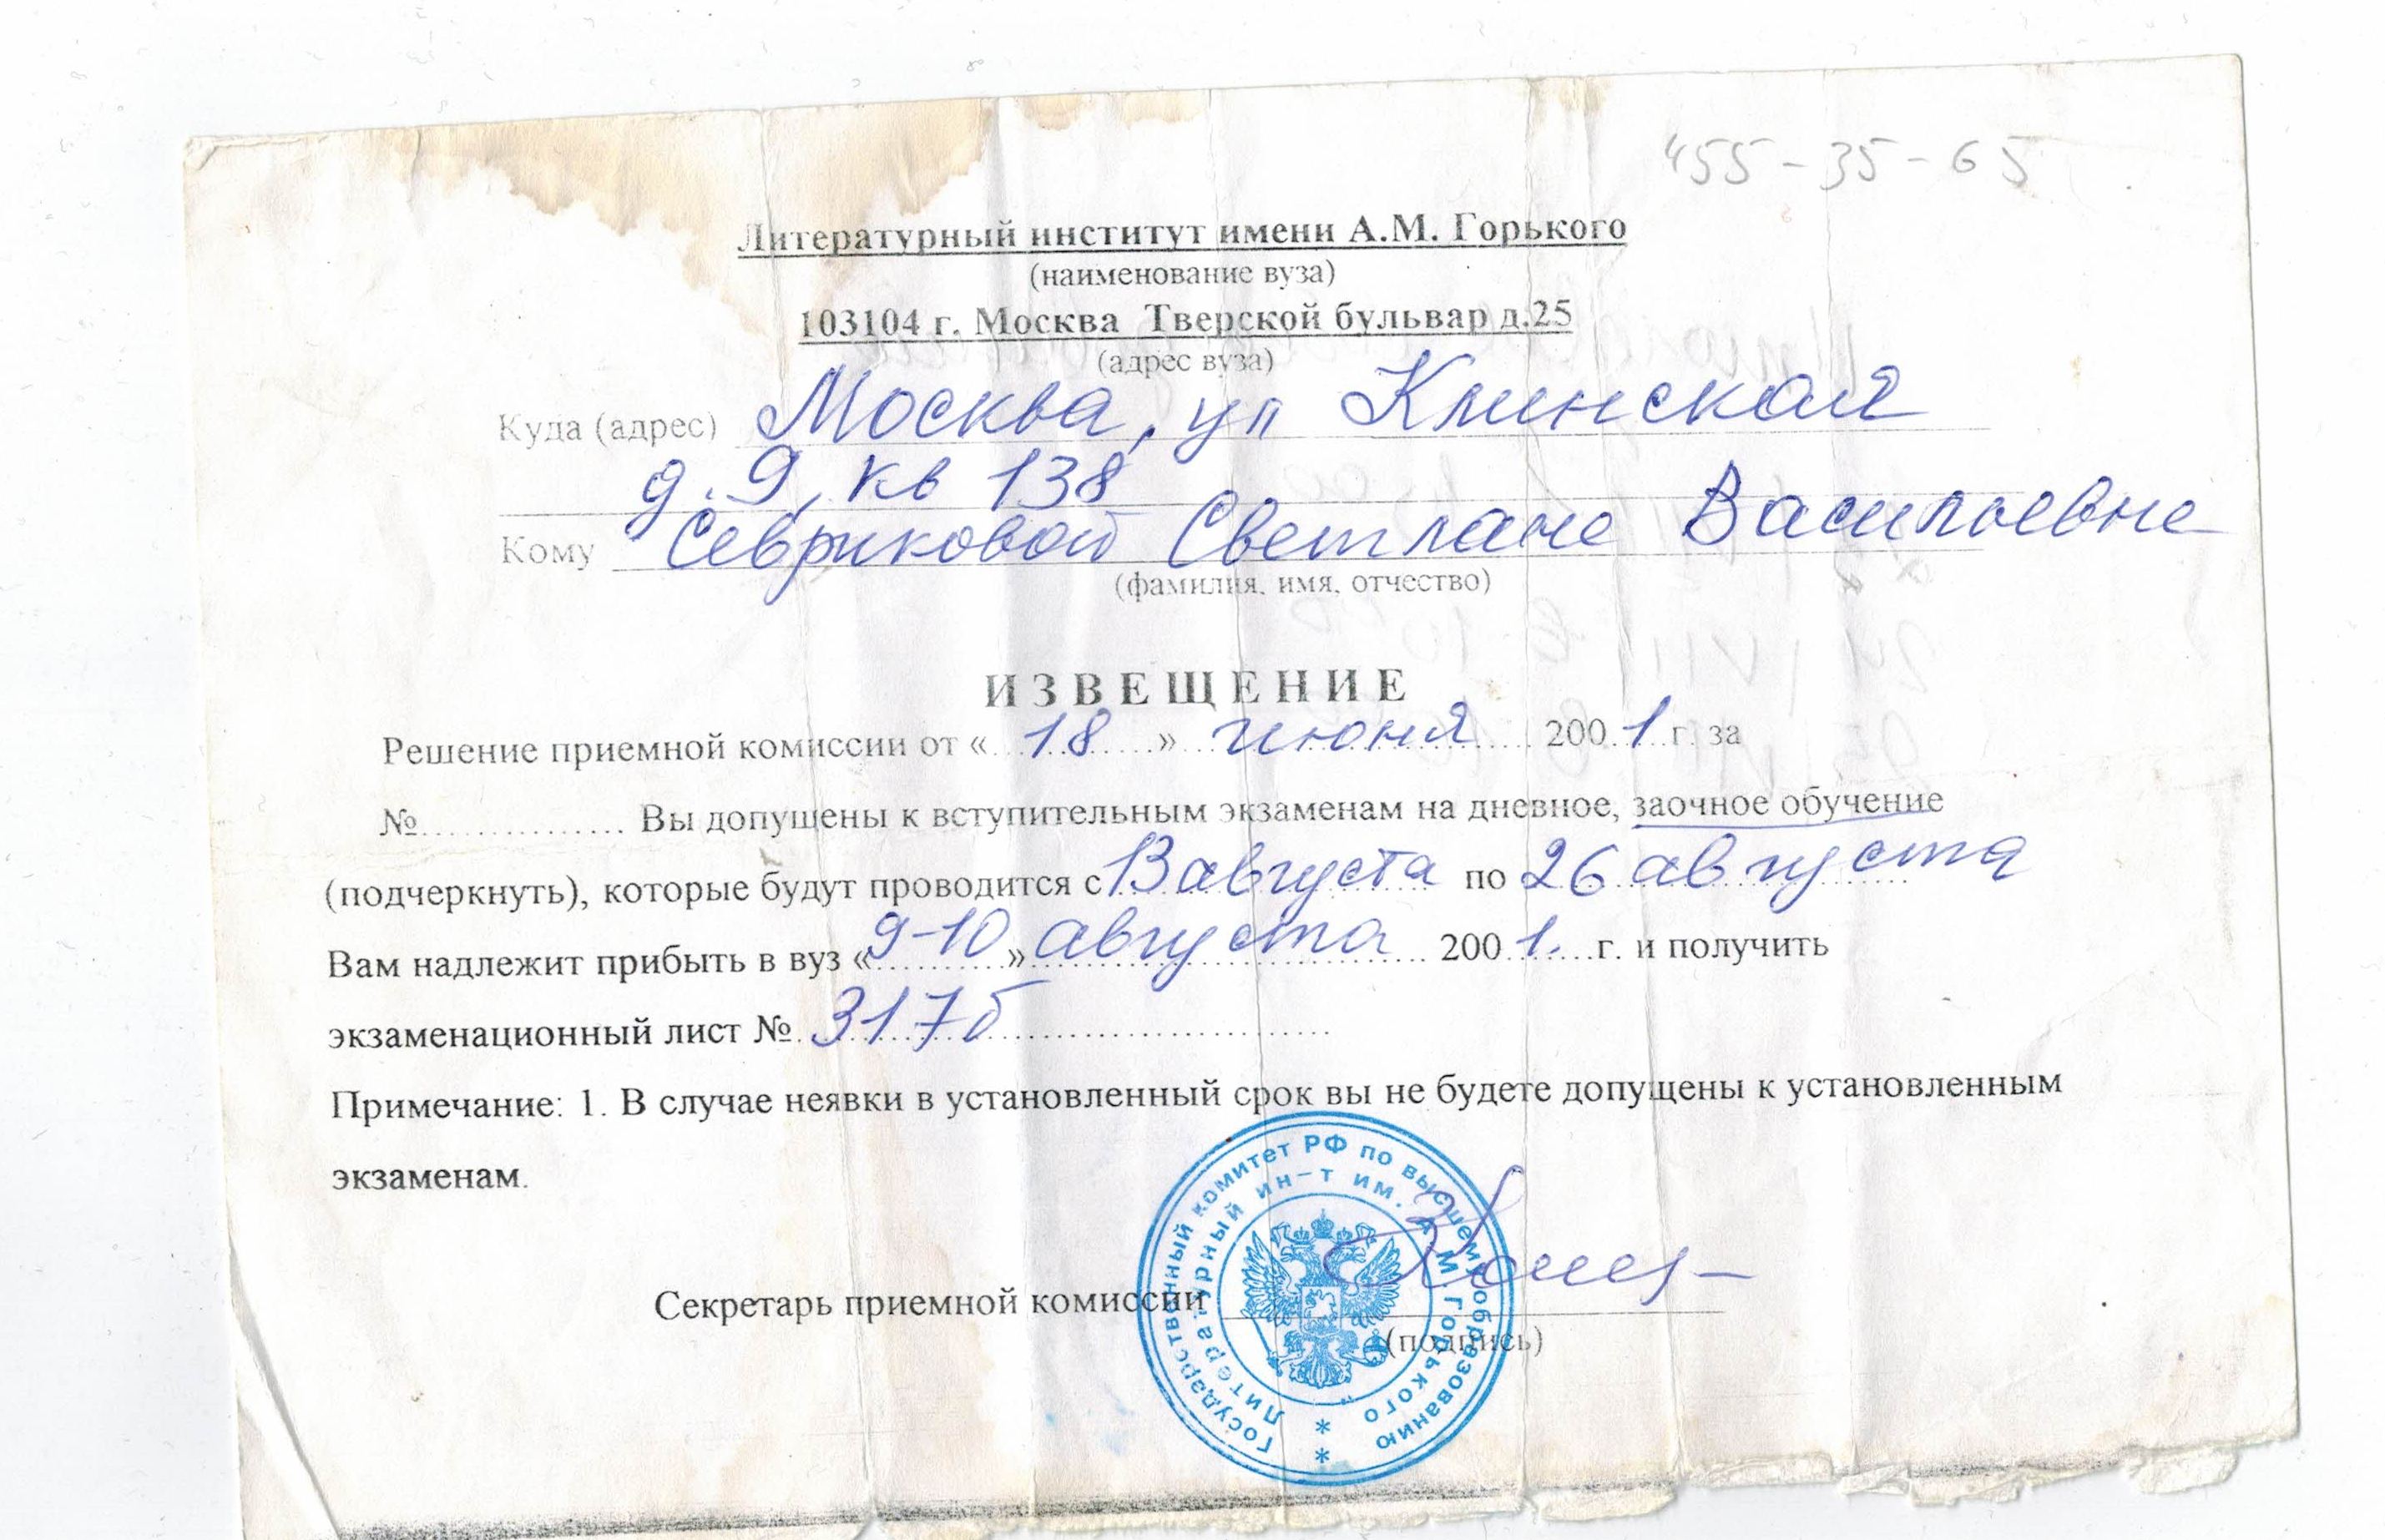 455-35-65
Литературный институт имени А.М. Горького
(наименование вуза)
103104 г. Москва Тверской бульвар д.25
(адрес вуза)
Куда (адрес) Москва, ул Клинская
д. 9, кв 138
Кому Севриковой Светлане Васильевне
(фамилия, имя, отчество)
ИЗВЕЩЕНИЕ
Решение приемной комиссии от «...18......» ...июня...... 200.1...г. за
№............... Вы допущены к вступительным экзаменам на дневное, заочное обучение
(подчеркнуть), которые будут проводится с 13 августа по 26 августа
Вам надлежит прибыть в вуз «9-10» августа 200.1.....г. и получить
экзаменационный лист № 317б
Примечание: 1. В случае неявки в установленный срок вы не будете допущены к установленным
экзаменам.
Секретарь приемной комиссии
(подпись)
Государственный комитет РФ по высшему образованию
Литературный ин-т им. А.М. Горького